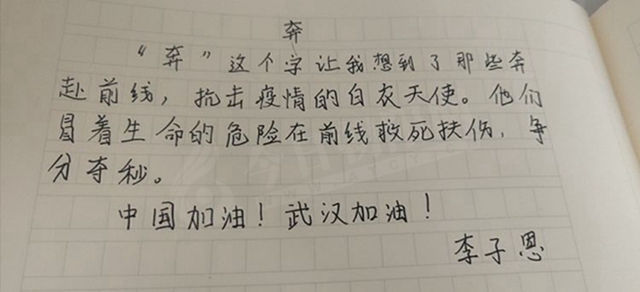 奔
“奔”这个字让我想到了那些奔
赴前线，抗击疫情的白衣天使。他们
冒着生命的危险在前线救死扶伤，争
分夺秒。
中国加油！武汉加油！
李子恩